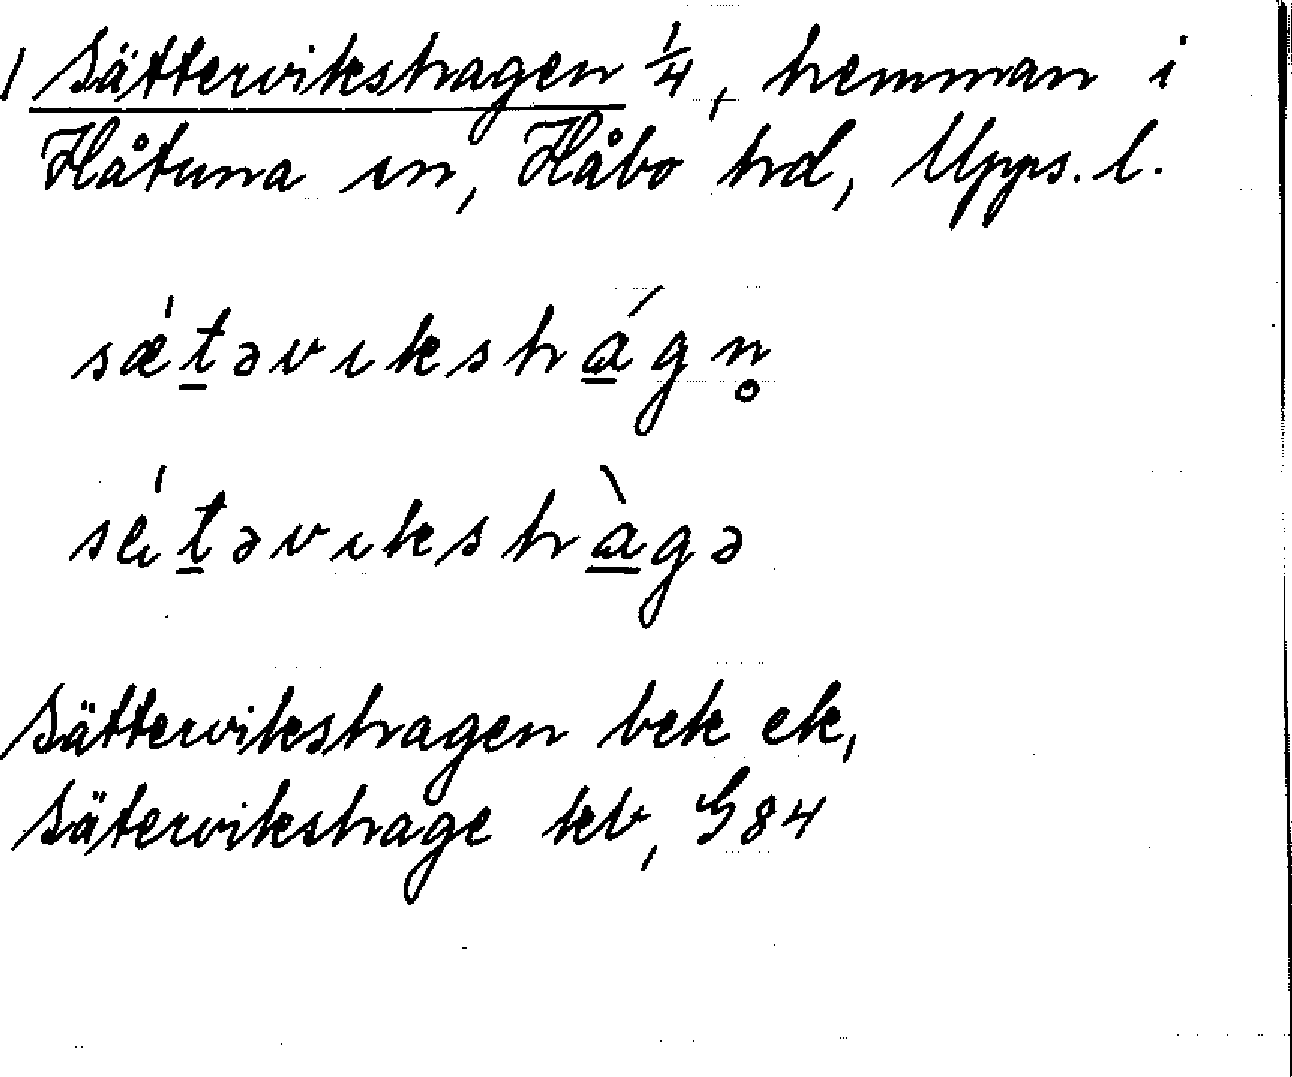 1 Sättervikshagen 1/4, hemman i
Håtuna sn, Håbo hd, Upps. l.
sǽt̲əvıkshá̲gn̥
séıt̲əvıkshà̲gə
Sättervikshagen bek ek,
Sätervikshage kb, G84